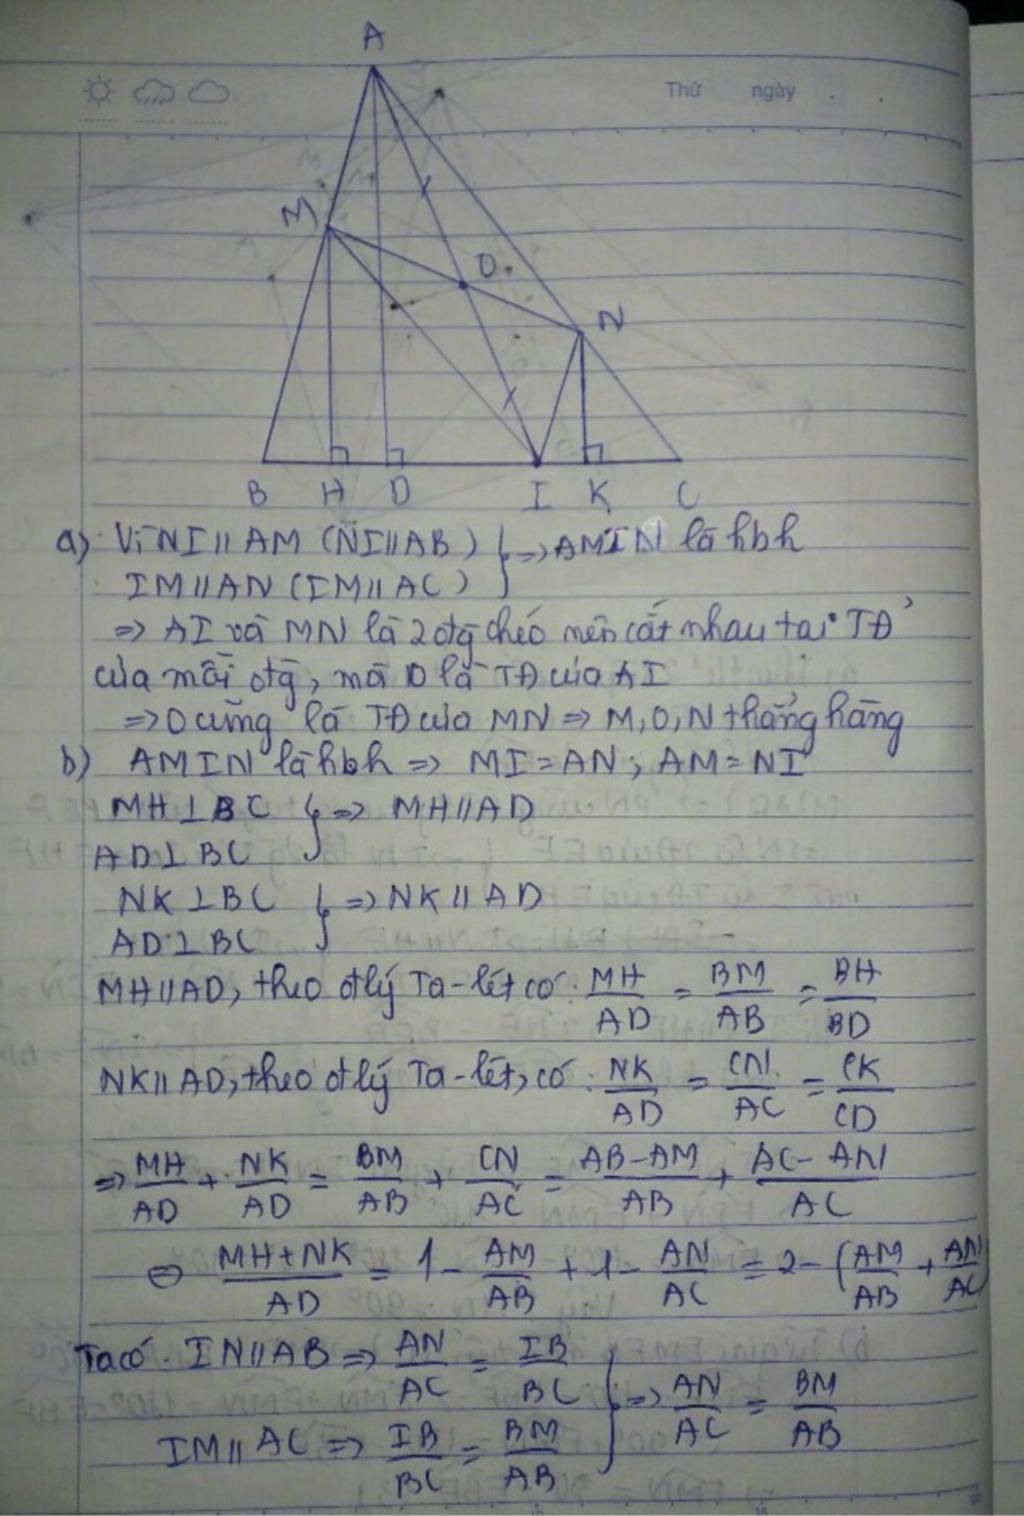 Thứ ngày
A
M
O
N
B H D I K C
a) Vì NI // AM (NI // AB) } => AMIN là hbh
IM // AN (IM // AC)
=> AI và MN là 2 đg chéo nên cắt nhau tại TĐ
của mỗi đg, mà O là TĐ của AI
=> O cũng là TĐ của MN => M, O, N thẳng hàng
b) AMIN là hbh => MI = AN ; AM = NI
MH ⊥ BC } => MH // AD
AD ⊥ BC
NK ⊥ BC } => NK // AD
AD ⊥ BC
MH // AD, theo đlý Ta-lét có: MH/AD = BM/AB = BH/BD
NK // AD, theo đlý Ta-lét, có: NK/AD = CN/AC = CK/CD
=> MH/AD + NK/AD = BM/AB + CN/AC = AB-AM/AB + AC-AN/AC
⇔ MH+NK/AD = 1 - AM/AB + 1 - AN/AC = 2 - (AM/AB + AN/AC
Ta có: IN // AB => AN/AC = IB/BC } => AN/AC = BM/AB
IM // AC => IB/BC = BM/AB